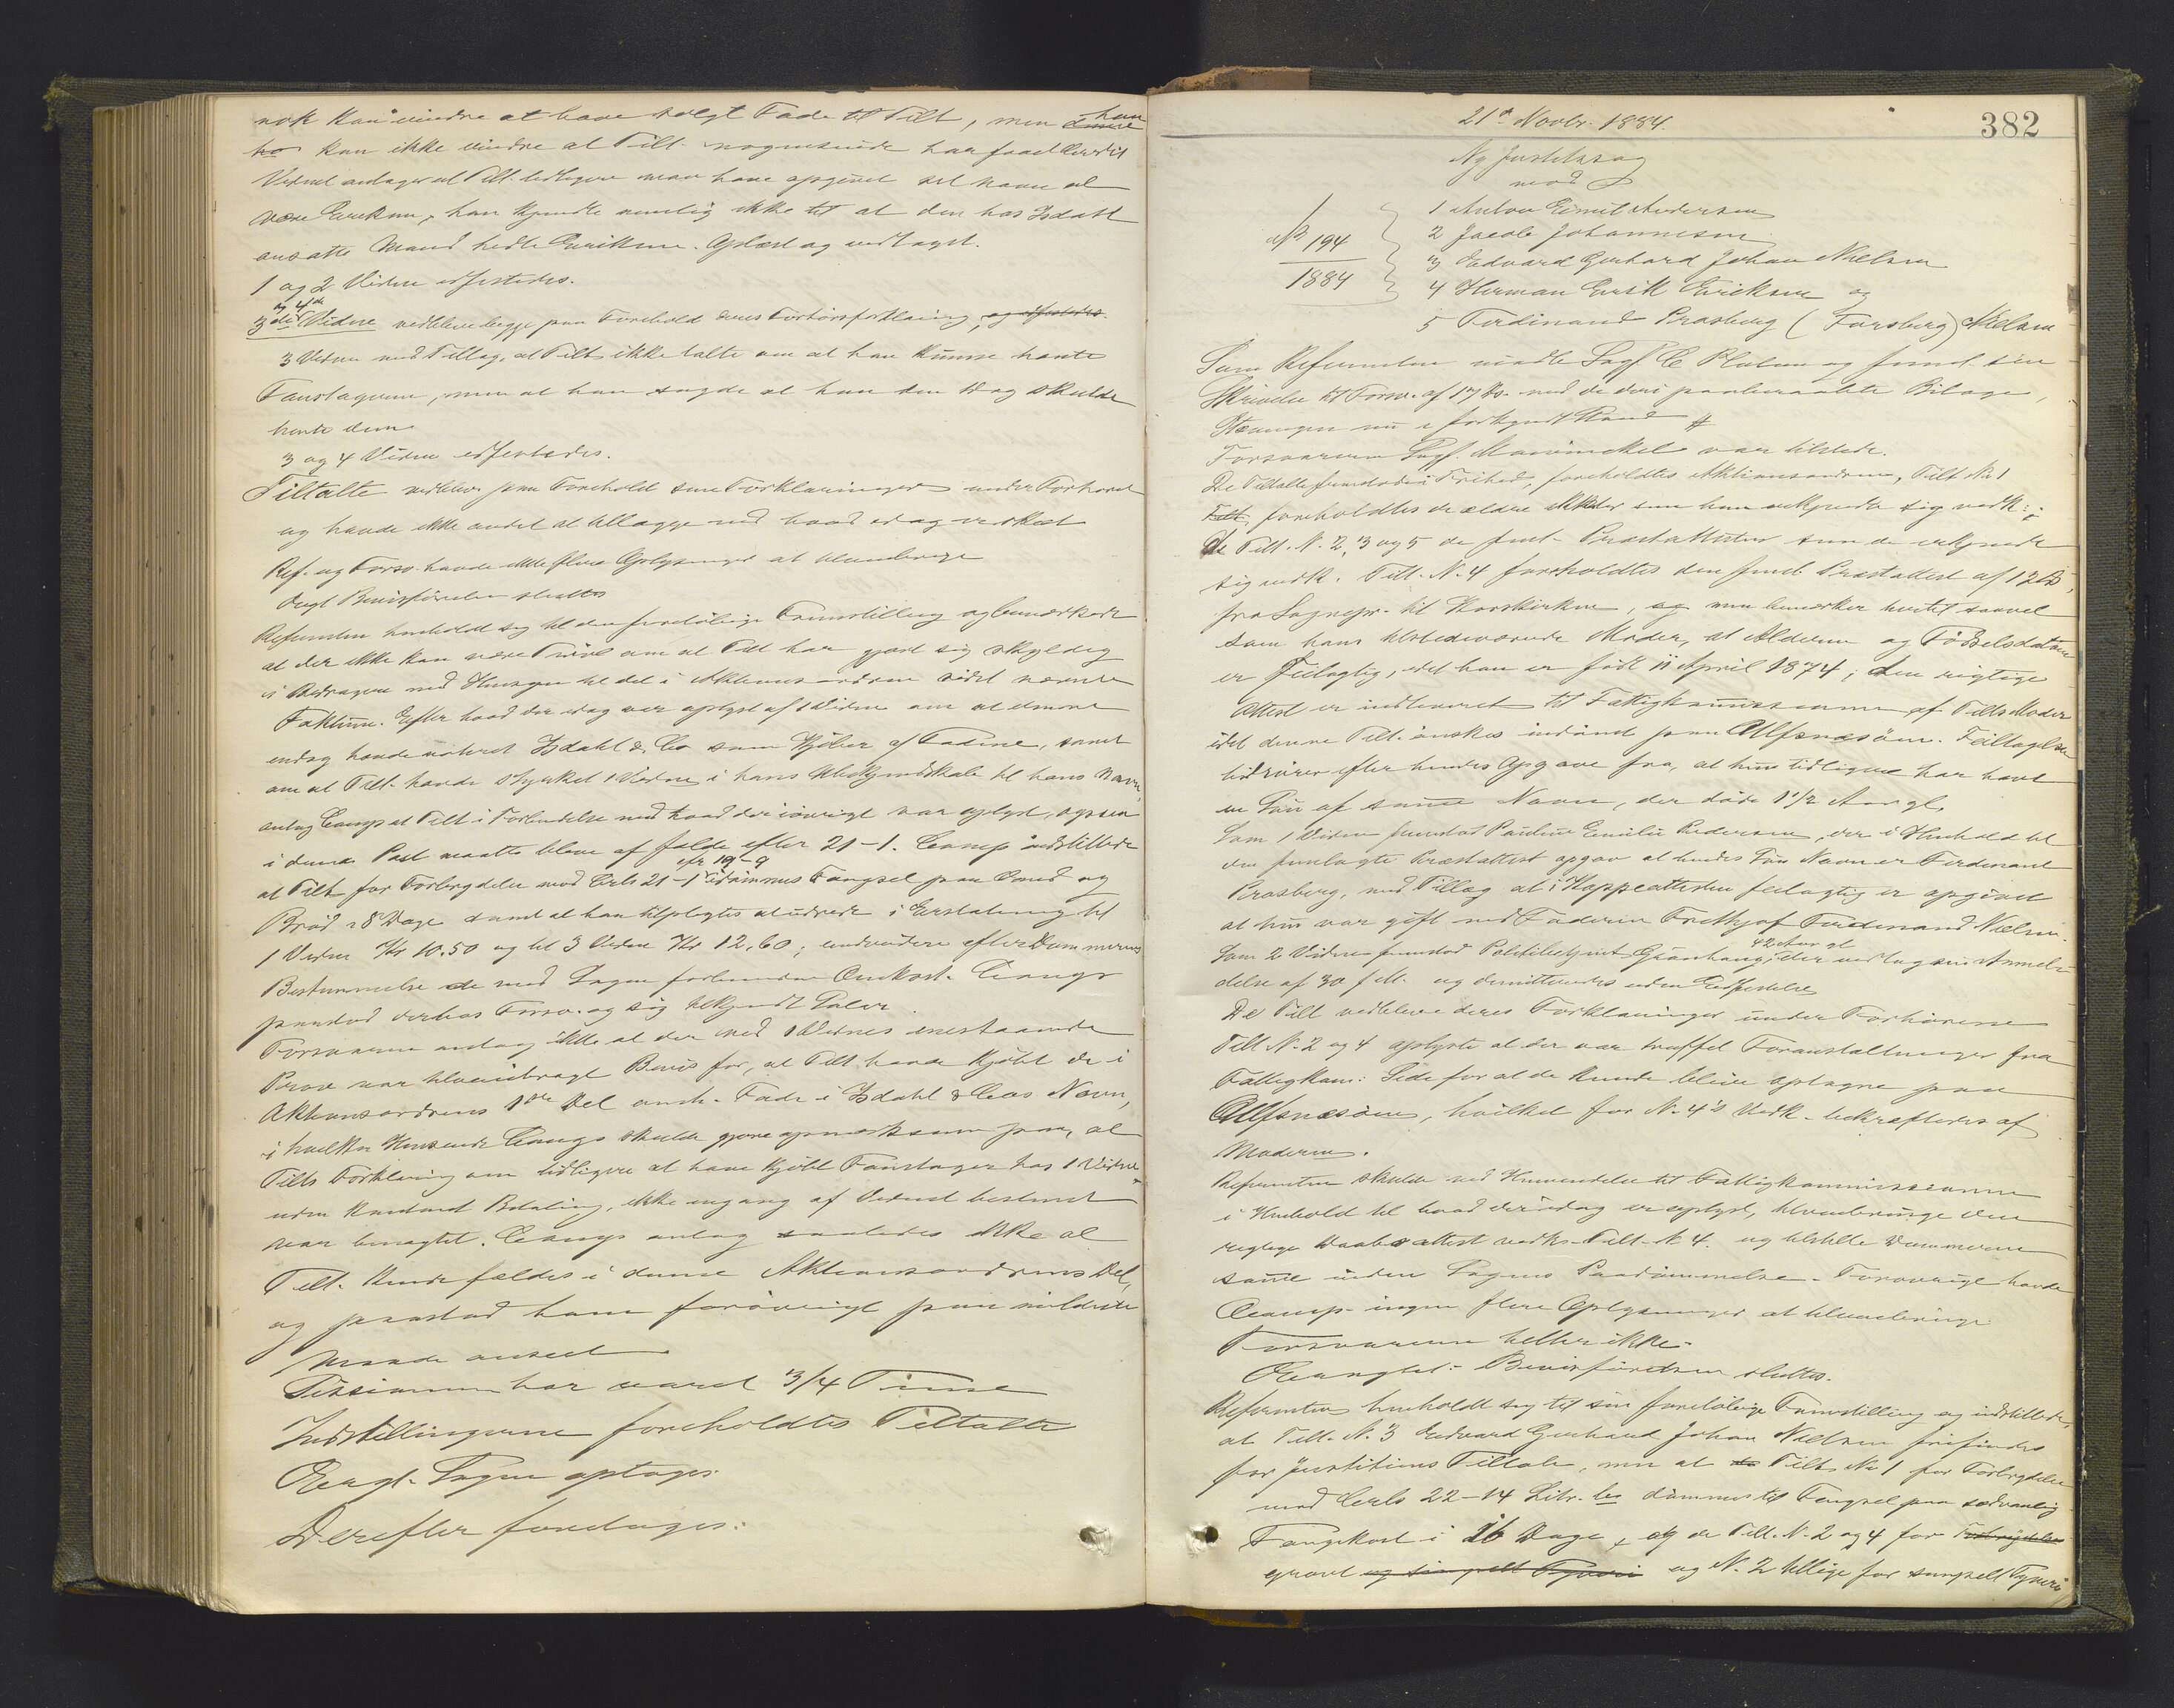 nok kan mindre at have solgt Fade til Tilt, men han
kan ikke mindre at Tilt. nogensinde har faaet Credit
Vidnet antager at Tilt. tidligere maa have opgivet sit Navn at
være Eriksen, han kjendte nemlig ikke til at den hos Isdahl
ansatte Mand hedte Eriksen. Oplæst og vedtaget.
1 og 2 Vidne edfæstedes.
3die og 4de Vidne vedbleve begge paa Forehold deres Forhørsforklaring, og edfæstedes.
3 Vidne med Tillæg, at Tilt ikke talte om at han kunne hente
Faustagerne, men at han sagde at han den Dag skulde
hente dem
3 og 4 Vidne edfæstedes.
Tiltalte vedblev paa Forehold sine Forklaringer under Forhøret
og havde ikke andet at tillægge ved hvad idag er skeet
Ref. og Forsv. havde ikke flere Oplysninger at tilveiebringe
Eragt Bevisførelsen sluttes
Referenten henholdt sig til den foreløbige Fremstilling og bemærkede
at der ikke kan være Tvivl om at Tilt har gjort sig skyldig
i Bedrageri med Hensyn til det i Aktionsordren sidst nævnte
Faktum. Efter hvad der idag var oplyst af 1 Vidne om at denne
endog havde noteret Isdahl & Co som Kjøber af Fadene, samt
om at Tilt. havde styrket 1 Vidne i hans Ubekjendtskab til hans Navn,
antog Comp at Tilt i Forbindelse med hvad der iøvrigt var oplyst, ogsaa
i denne Post maatte blive at fælde efter 21-1. Comp indstillede
at Tilt for Forbrydelse mod Crls 21-1 cfr 19-9 idømmes Fængsel paa Vand og
Brød i 8 Dage samt at han tilpligtes at udrede i Erstatning til
1 Vidne Kr 10.50 og til 3 Vidne Kr 12,60; endvidere efter Dommerens
Bestemmelse de med Sagen forbundne Omkost. Comp
paastod derhos Forsv. og sig tilkjendt Salær.
Forsvareren antog ikke at der ved 1 Vidnes enestaaende
Prov var tilveiebragt Bevis for, at Tilt havde kjøbt de i
Aktionsordrens 1ste Del omh. Fade i Isdahl & Cos Navn,
i hvilken Henseende Comp skulde gjøre opmærksom paa, at
Tilts Forklaring om tidligere at have kjøbt Faustager hos 1 Vidne
uden kontant Betaling, ikke engang af Vidnet bestemt
var benægtet. Comp antog saaledes ikke at
Tilt. kunde fældes i denne Aktionsordrens Del,
og paastod ham forøvrigt paa mildeste
Maade anseet
Sessionen har varet 3/4 Time
Indstillingerne foreholdtes Tiltalte
Eragt. Sagen optages.
Derefter foretoges:
21d Novbr. 1884.
382
Ny Justitssag
mod
No 194
1884
1 Anton Emil Andersen
2 Jacob Johannesen
3 Edvard Gerhard Johan Nielsen
4 Herman Erik Eriksen og
5 Ferdinand Brosberg (Forsberg) Nielsen
Som Referenten mødte Sagf C Platou og freml. sin
Skrivelse til Forsv. af 17 ds. med de deri paaberaabte Bilage,
Stævningen nu i forkyndt Stand #
Forsvareren Sagf. Mowinckel var tilstede.
De Tiltalte fremstode i Frihed, foreholdtes Aktionsordrene, Tilt No 1
foreholdtes de ældre Akter som han vedkjendte sig vedk.;
de Tilt. N. 2, 3 og 5 de freml. Præsteattester som de vedkjendte
sig vedk. Tilt. N. 4 foreholdtes den freml. Præsteattest af 12 ds,
fra Sognepr. til Korskirken, men bemærker hertil saavel
som hans tilstedeværende Moder, at Alderen og Fødselsdatoen
er feilagtig, idet han er født 11 April 1874; den rigtige
Attest er indleveret til Fattigkommissionen af Tilts Moder
idet denne Tilt. ønskes indsendt paa Ulfsnesøen. Feiltagelsen
hidrører efter hendes Opgave fra, at hun tidligere har havt
en Søn af samme Navn, der døde 1 1/2 Aar gl.
Som 1 Vidne fremstod Pauline Emilie Pedersen, der i Henhold til
den fremlagte Præsteattest opgav at hendes Søn Navn er Ferdinand
Brosberg, med Tillæg at i Koppeattesten feilagtig er opgivet
at hun var gift med Faderen Frithjof Ferdinand Nielsen.
Som 2 Vidne fremstod Politibetjent Grønhaug, 42 Aar gl der vedtog sin Anmel-
delse af 30 f M. og demitteredes uden Edfæstelse
De Tilt vedbleve deres Forklaringer under Forhørene
Tilt N. 2 og 4 oplyste at der var truffet Foranstaltninger fra
Fattigkom: Side for at de kunde blive optagne paa
Ulfsnesøen, hvilket for N. 4's Vedk. bekræftedes af
Moderen.
Referenten skulde ved Henvendelse til Fattigkommissionen
i Henhold til hvad der idag er oplyst, tilveiebringe den
rigtige Daabsattest vedk. Tilt. N 4. og tilstille Dommeren
samme inden Sagens Paadømmelse. Forøvrigt havde
Comp. ingen flere Oplysninger at tilveiebringe
Forsvareren hellerikke.
Eragtet: Bevisførelsen sluttes.
Referenten henholdt sig til sin foreløbige Fremstilling og indstillede,
at Tilt. N. 3 Edvard Gerhard Johan Nielsen frifindes
for Justitiens Tiltale, men at Tilt. No 1 for Forbrydelse
mod Crls 22-14 Litr. b dømmes til Fængsel paa sædvanlig
Fangekost i 16 Dage, og de Tilt. N. 2 og 4 for Forbrydelse
grovt og simpelt Tyveri og N. 2 tillige for simpelt Tyveri